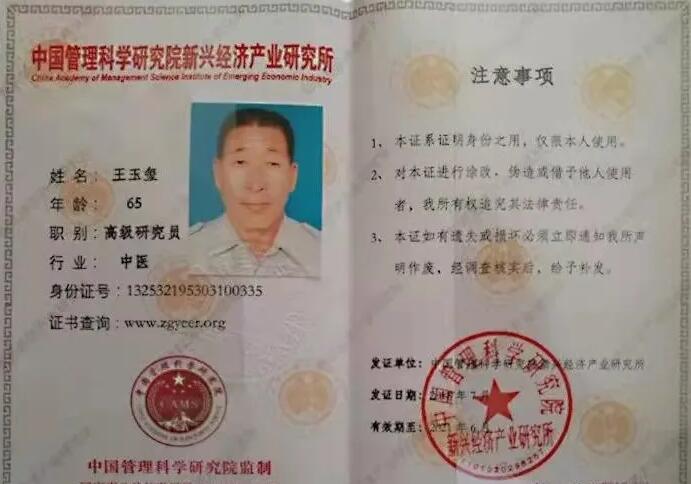 中国管理科学研究院新兴经济产业研究所
China Academy of Management Science Institute of Emerging Economic Industry
姓名：王玉玺
年龄：65
职别：高级研究员
行业：中医
身份证号：132532195303100335
证书查询：www.zgyeer.org
中国管理科学研究院
CAMS
中国管理科学研究院监制
注意事项
1、本证系证明身份之用，仅限本人使用。
2、对本证进行涂改、伪造或借予他人使用
者，我所有权追究其法律责任。
3、本证如有遗失或损坏必须立即通知我所声
明作废，经调查核实后，给予补发。
发证单位：中国管理科学研究院新兴经济产业研究所
发证日期：年7月
有效期至：年6月
中国管理科学研究院
新兴经济产业研究所